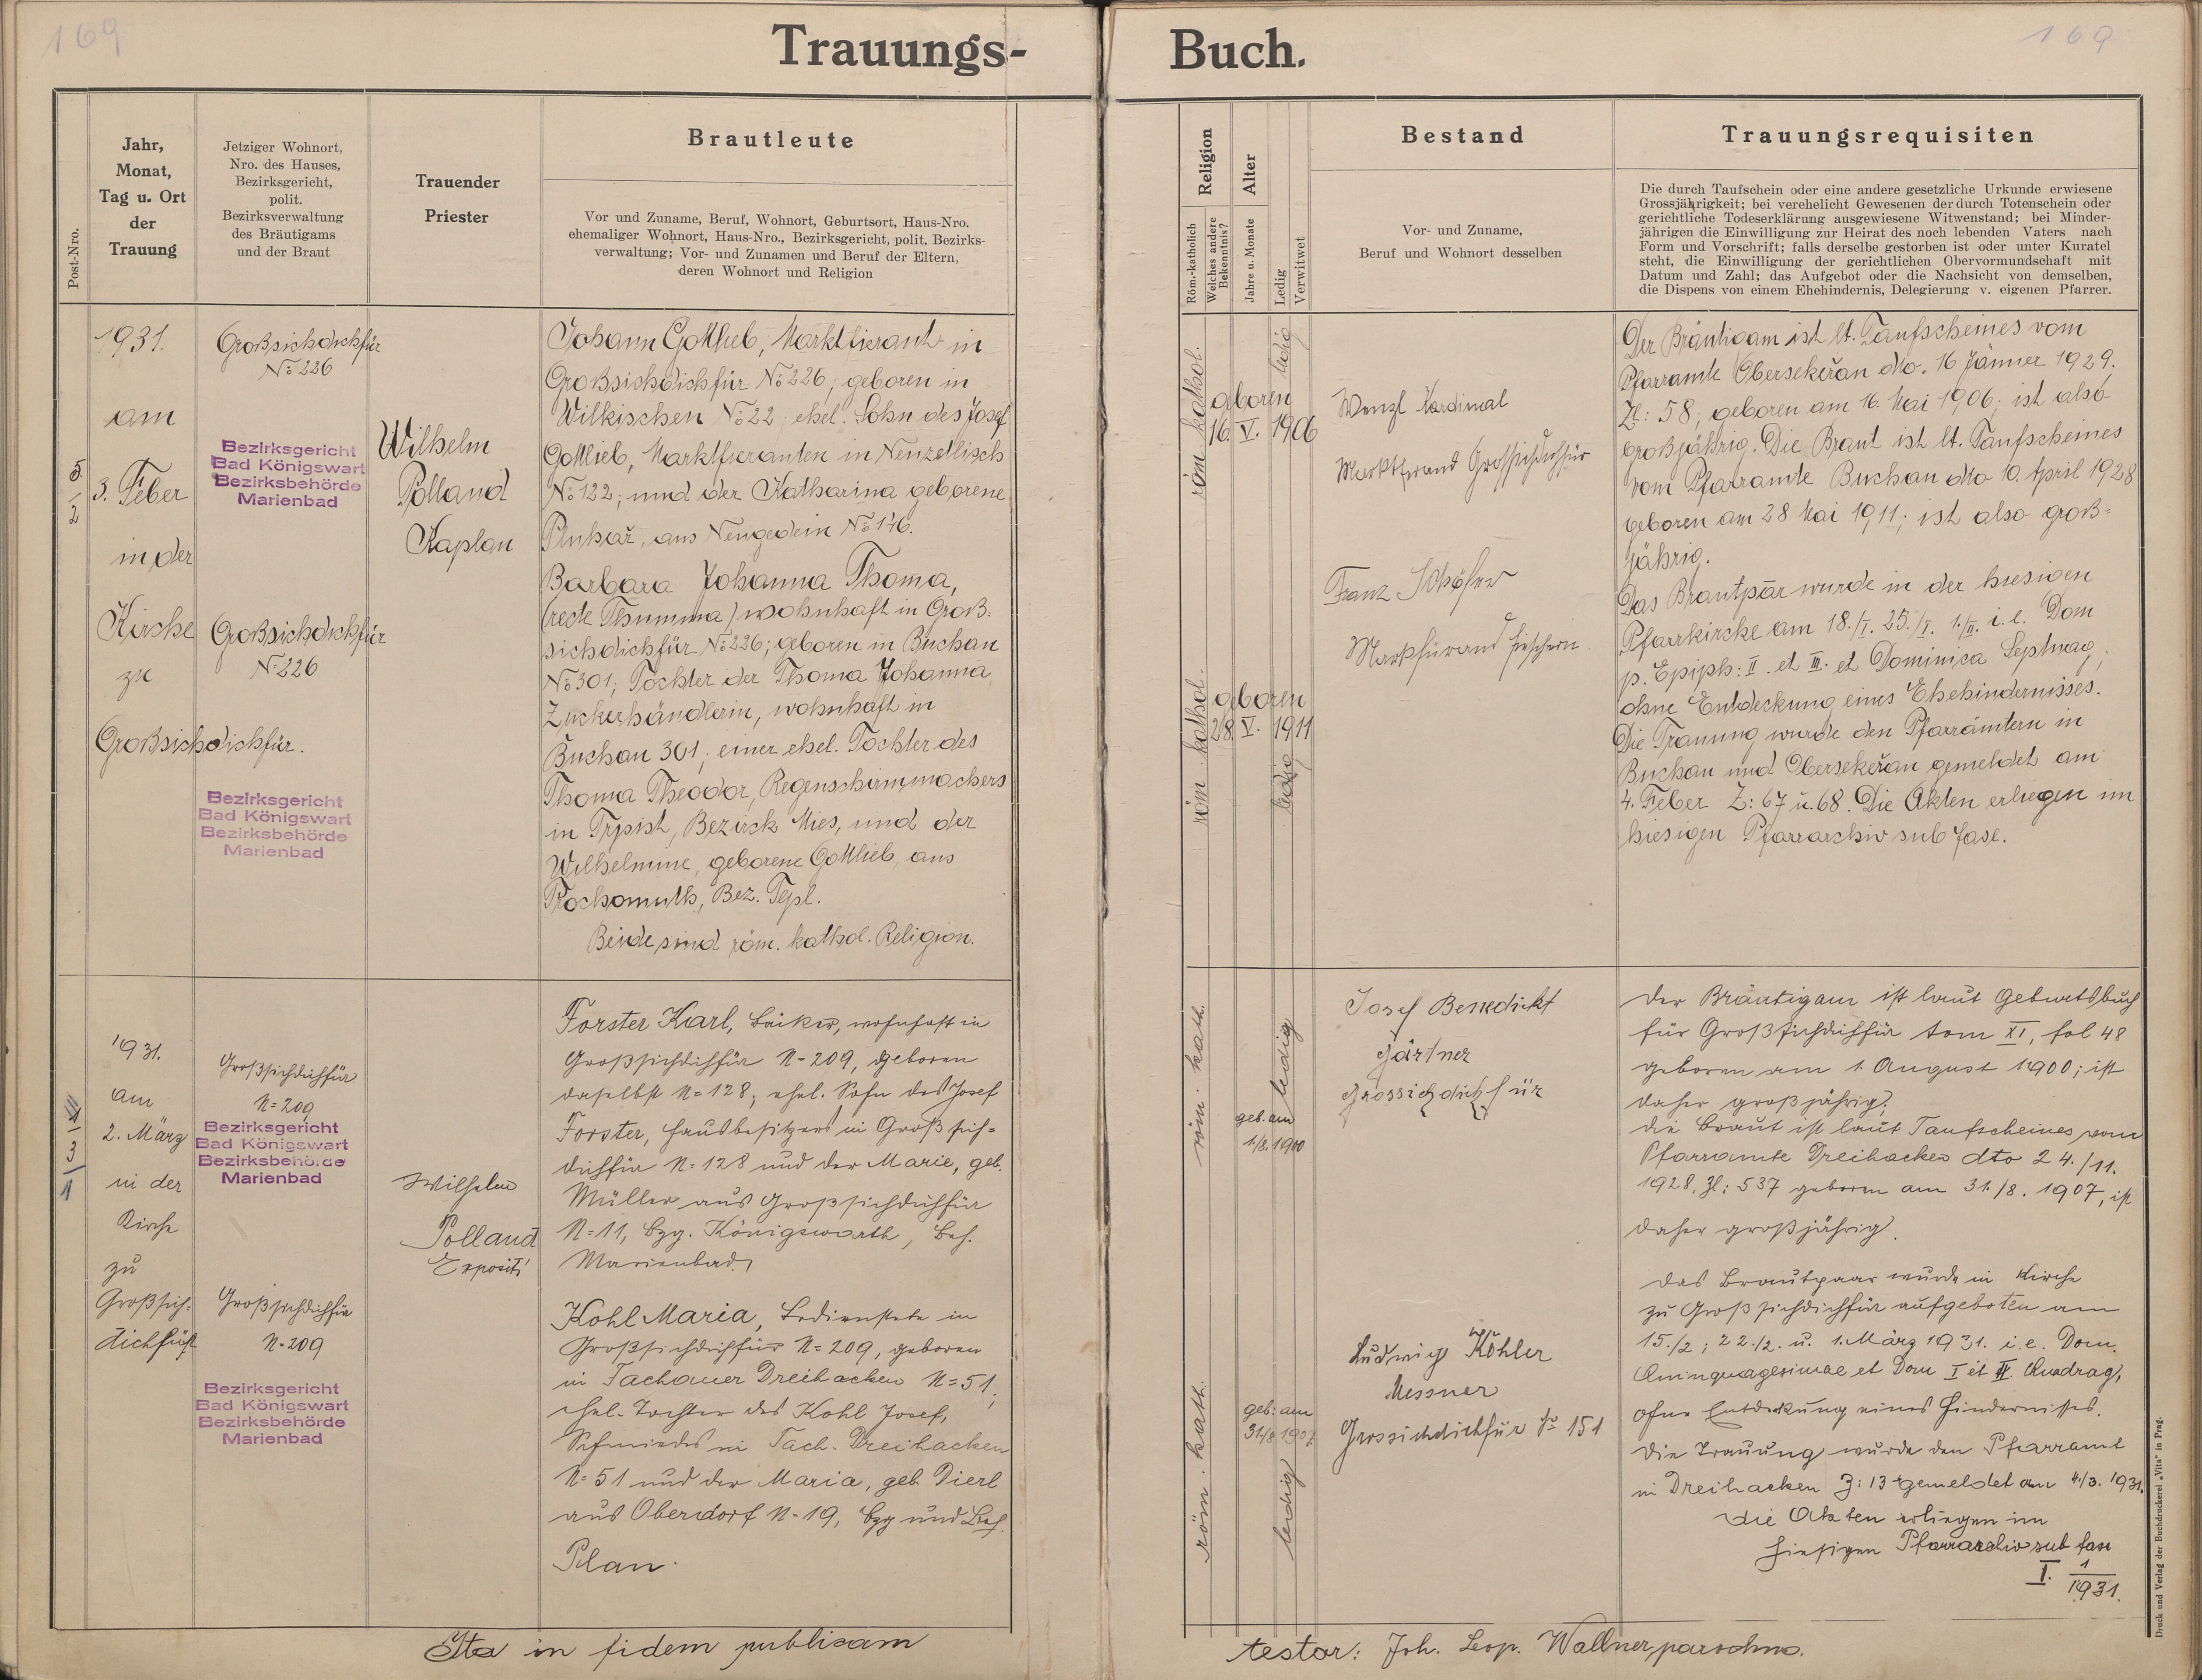 169
169
Trauungs-
Buch.
Post-Nro.
Jahr,
Monat,
Tag u. Ort
der
Trauung
Jetziger Wohnort,
Nro. des Hauses,
Bezirksgericht,
polit.
Bezirksverwaltung
des Bräutigams
und der Braut
Trauender
Priester
Brautleute
Vor und Zuname, Beruf, Wohnort, Geburtsort, Haus-Nro.
ehemaliger Wohnort, Haus-Nro., Bezirksgericht, polit. Bezirks-
verwaltung; Vor- und Zunamen und Beruf der Eltern,
deren Wohnort und Religion
Religion
Röm.-katholich
Welches andere
Bekenntnis?
Alter
Jahre u. Monate
Ledig
Verwitwet
Bestand
Vor- und Zuname,
Beruf und Wohnort desselben
Trauungsrequisiten
Die durch Taufschein oder eine andere gesetzliche Urkunde erwiesene
Grossjährigkeit; bei verehelicht Gewesenen der durch Totenschein oder
gerichtliche Todeserklärung ausgewiesene Witwenstand; bei Minder-
jährigen die Einwilligung zur Heirat des noch lebenden Vaters nach
Form und Vorschrift; falls derselbe gestorben ist oder unter Kuratel
steht, die Einwilligung der gerichtlichen Obervormundschaft mit
Datum und Zahl; das Aufgebot oder die Nachsicht von demselben,
die Dispens von einem Ehehindernis, Delegierung v. eigenen Pfarrer.
5/2
1931.
am
3. Feber
in der
Kirche
zu
Großsichdichfür.
Großsichdichfür
No 226
Bezirksgericht
Bad Königswart
Bezirksbehörde
Marienbad
Großsichdichfür
No 226
Bezirksgericht
Bad Königswart
Bezirksbehörde
Marienbad
Wilhelm
Polland
Kaplan
Johann Gottlieb, Marktfierant in
Großsichdichfür No 226; geboren in
Wilkischen No 22; ehel. Sohn des Josef
Gottlieb, Marktfieranten in Neuzedlisch
No 122; und der Katharina geborene
aus Neugedein No 146.
Barbara Johanna Thoma,
(recte Thumma) wohnhaft in Groß-
sichdichfür No 226; geboren in Buchau
No 301; Tochter der Thoma Johanna,
Zuckerhändlerin, wohnhaft in
Buchau 301; einer ehel. Tochter des
Thoma Theodor, Regenschirmmachers
in Trpist, Bezirck Mies, und der
Wilhelmine, geborene Gottlieb, aus
Prochomuth, Bez. Tepl.
Beide sind röm. kathol. Religion.
röm. kathol.
geboren
16. V. 1906
ledig
röm. kathol.
geboren
28. V. 1911
ledig
Wenzl Kardinal
Marktfirand Grossichdichfür
Franz
Der Bräutigam ist lt. Taufscheines vom
Pfarramte Obersekeřan dto. 16 Jänner 1929.
Zl: 58; geboren am 16. Mai 1906; ist also
großjährig. Die Braut ist lt. Taufscheines
vom Pfarramte Buchau dto 10. April 1928
geboren am 28 Mai 1911; ist also groß-
jährig.
Das Brautpaar wurde in der hiesigen
Pfarrkirche am 18./I. 25./I. 1./II. i. e. Dom
p. Epiph: II. et III. et Dominica Septuag,
ohne Entdeckung eines Ehehindernisses.
Die Trauung wurde den Pfarrämtern in
Buchau und Obersekeřan gemeldet am
4. Feber Z: 67 u. 68. Die Akten erliegen im
hiesigen Pfarrarchiv sub fasc.
1931.
am
2. März
in der
Kirche
zu
Großsich-
dichfür
Großsichdichfür
N=209
Bezirksgericht
Bad Königswart
Bezirksbehörde
Marienbad
Großsichdichfür
N=209
Bezirksgericht
Bad Königswart
Bezirksbehörde
Marienbad
Wilhelm
Polland
Expositi
Forster Karl, Bäcker, wohnhaft in
Großsichdichfür N=209, geboren
daselbst N=128; ehel. Sohn des Josef
Forster, Hausbesitzers in Großsich-
dichfür N=128 und der Marie, geb.
Müller aus Großsichdichfür
N=11, Bzg. Königswarth, Bzh.
Marienbad.
Kohl Maria, Bedienstete in
Großsichdichfür N=209, geboren
in Tachauer Dreihacken N=51,
ehel. Tochter des Kohl Josef,
Schmiedes in Tach. Dreihacken
N=51 und der Maria, geb. Dierl
aus Oberdorf N=19, Bzg und Bzh.
Plan.
röm. kath.
geb. am
1./8. 1900
ledig
röm. kath.
geb. am
31/8 1907
ledig
Josef Benedickt
Gärtner
Grossichdichfür
Ludwig Köhler
Messner
Grossichdichfür No 151
Der Bräutigam ist laut Geburtsbuch
für Großsichdichfür tom XI, fol 48
geboren am 1. August 1900; ist
daher großjährig;
die Braut ist laut Taufscheines vom
Pfarramte Dreihacken dto 24./11.
1928, Zl: 537 geboren am 31./8. 1907, ist
daher großjährig.
Das Brautpaar wurde in Kirche
zu Großsichdichfür aufgeboten am
15./2; 22./2. u. 1. März 1931. i. e. Dom.
Quinquagesimae et Dom I et II. Quadrag,
ohne Entdeckung eines Hindernisses.
Die Trauung wurde den Pfarramt
in Dreihacken Z: 13 gemeldet am 4./3. 1931.
Die Akten erliegen im
hiesigen Pfarrarchiv sub fasc
I. 1/1931.
Ita in fidem publicam
testor: Joh. Leop. Wallner, parochus.
Druck und Verlag der Buchdruckerei „Vita“ in Prag.